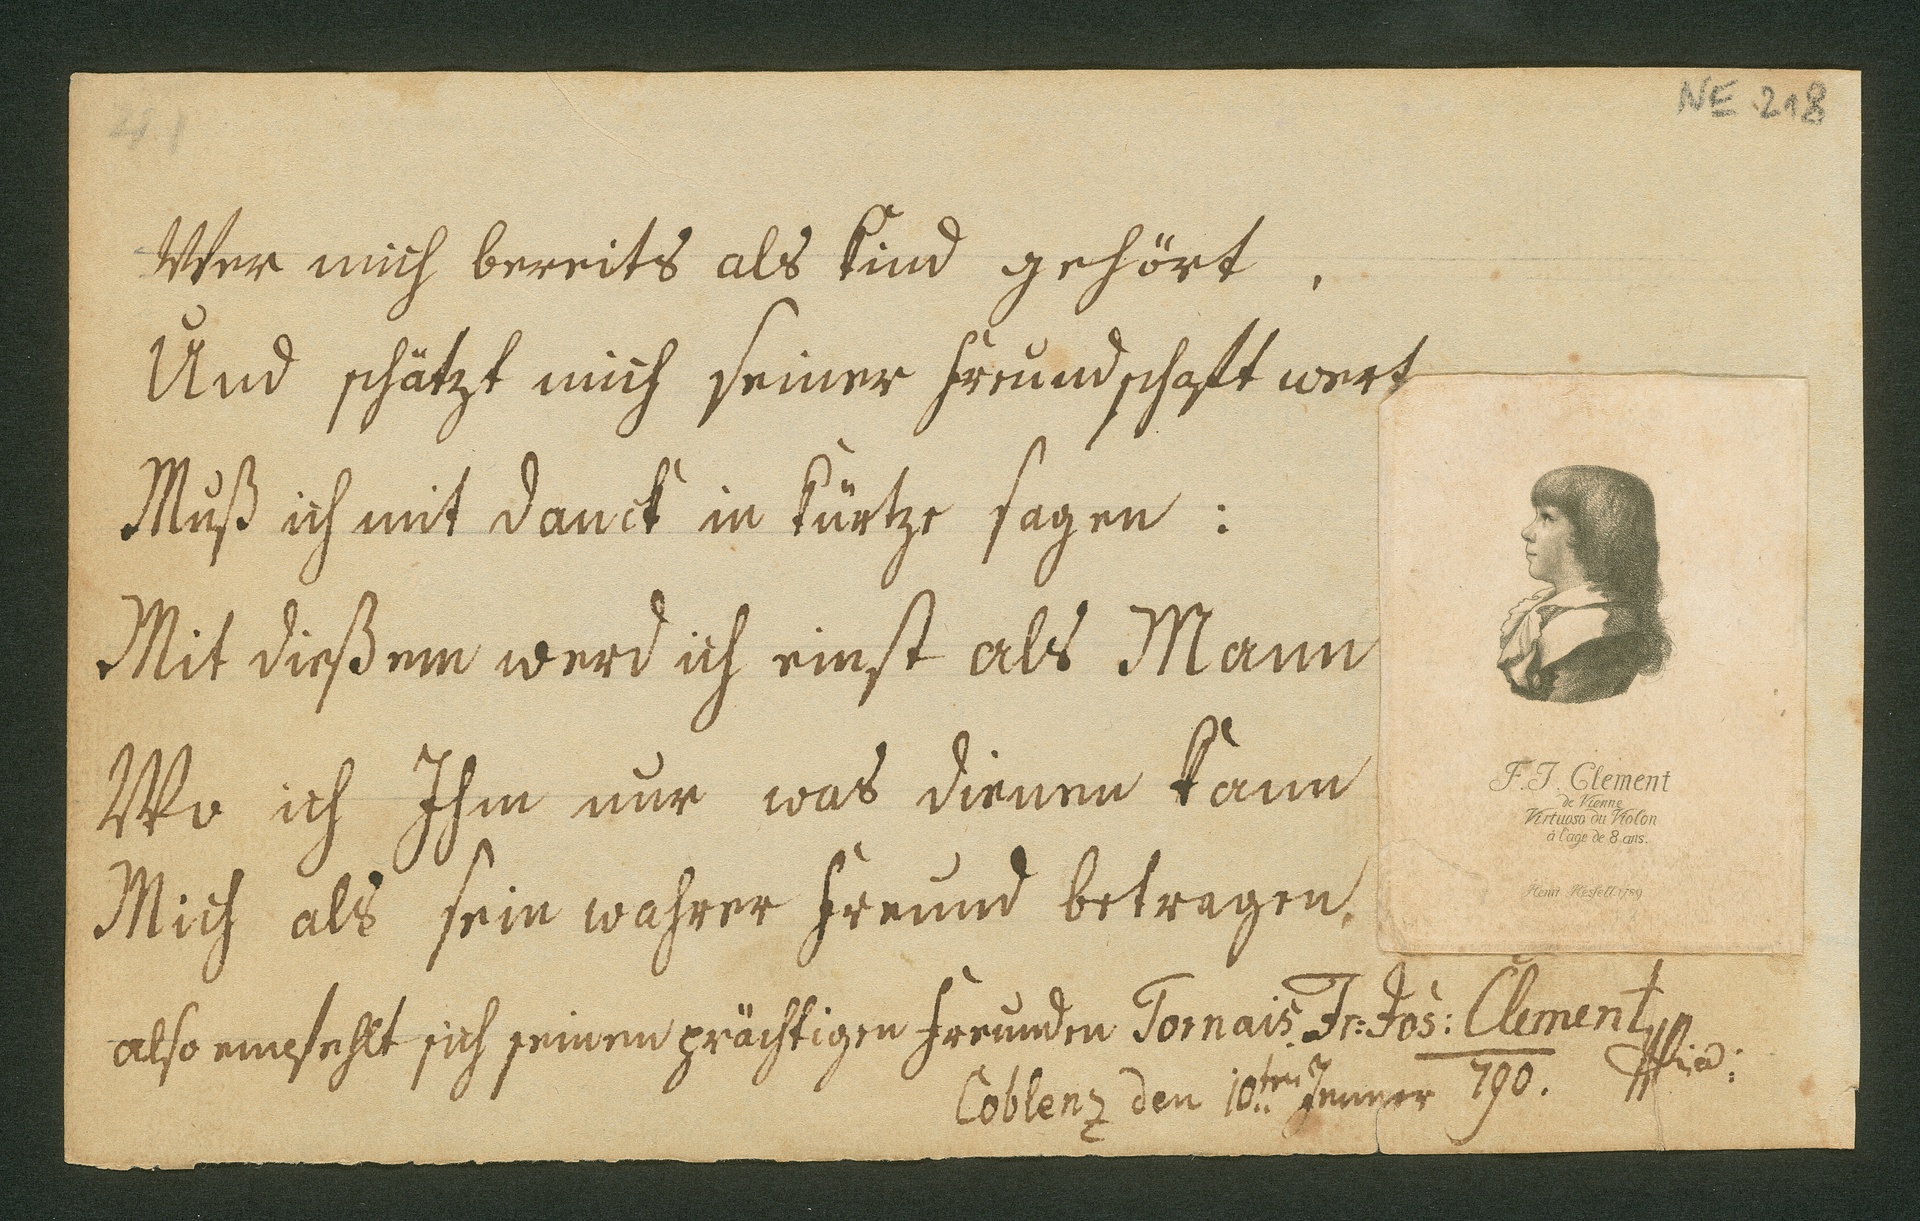 NE 218
Wer mich bereits als Kind gehört,
Und schätzt mich seiner Freundschaft wert
Muß ich mit Danck in Kürtze sagen :
Mit dießem werd ich einst als Mann
Wo ich Ihm nur was dienen Kann
Mich als sein wahrer Freund betragen.
also empfehlt sich seinen prächtigen Freunden Tornais Fr: Jos: Clement
Coblenz den 10ten Jenner 790.
F. J. Clement
de Vienne
Virtuoso du Violon
à l'age de 8 ans.
1789